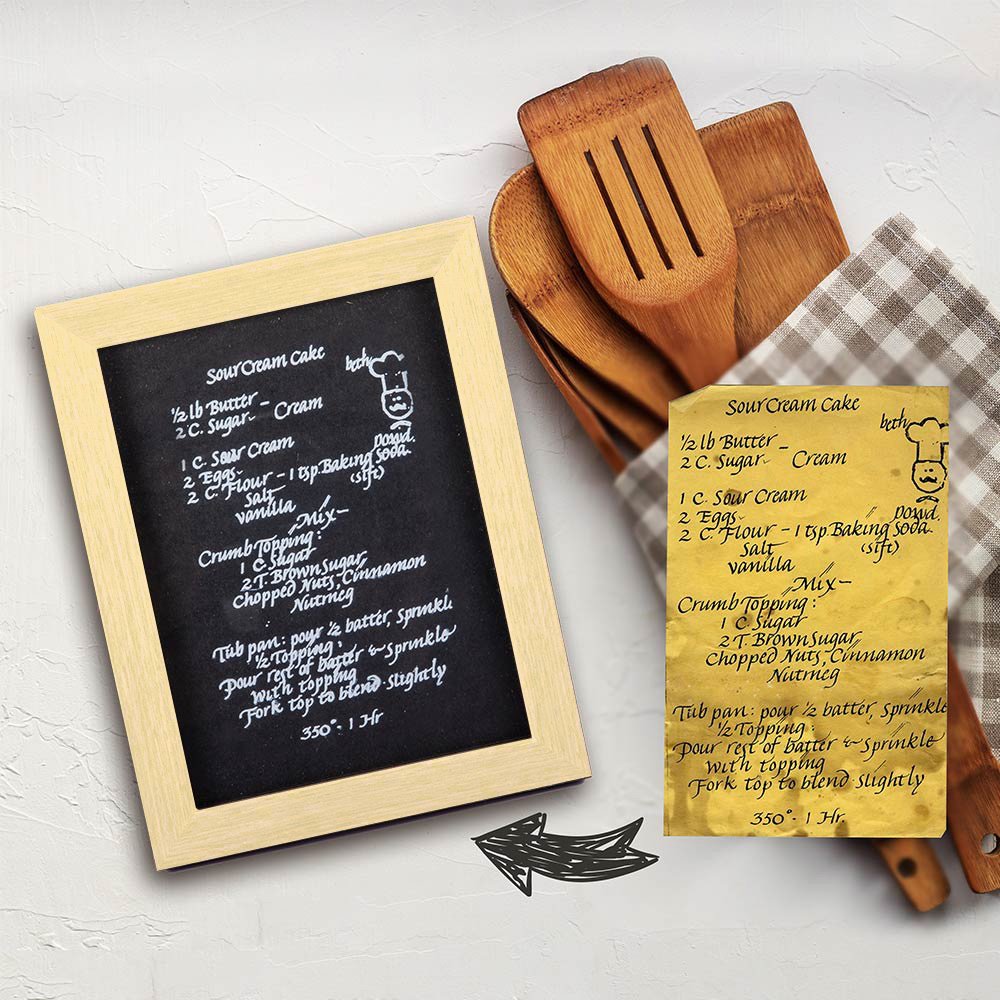 Sour Cream Cake
beth
½ lb Butter -
2 C. Sugar - Cream
1 C. Sour Cream
2 Eggs
2 C. Flour - 1 tsp. Baking Soda
Salt (sift)
vanilla
Mix -
Crumb Topping :
1 C. Sugar
2 T. Brown Sugar
Chopped Nuts, Cinnamon
Nutmeg
Tub pan: pour ½ batter, Sprinkl
½ Topping :
Pour rest of batter & Sprinkle
with topping
Fork top to blend slightly
350° - 1 Hr
Sour Cream Cake
beth
½ lb Butter -
2 C. Sugar - Cream
1 C. Sour Cream
2 Eggs
2 C. Flour - 1 tsp. Baking Soda
Salt (sift)
vanilla
Mix -
Crumb Topping :
1 C. Sugar
2 T. Brown Sugar
Chopped Nuts, Cinnamon
Nutmeg
Tub pan: pour ½ batter, Sprinkle
½ Topping :
Pour rest of batter & Sprinkle
with topping
Fork top to blend slightly
350° - 1 Hr.